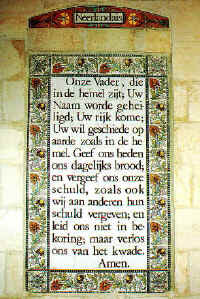 Neerlandais
Onze Vader, die
in de hemel zijt; Uw
Naam worde gehei-
ligd; Uw rijk kome;
Uw wil geschiede op
aarde zoals in de he
mel. Geef ons heden
ons dagelijks brood;
en vergeef ons onze
schuld, zoals ook
wij aan anderen hun
schuld vergeven; en
leid ons niet in be-
koring; maar verlos
ons van het kwade.
Amen.